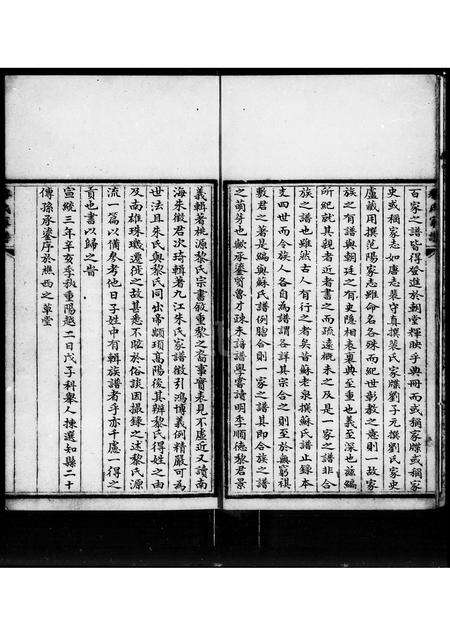 百家之譜皆得登進於朝堂輝映乎典冊而或稱家
史或稱家志如唐志裴守真撰裴氏家牒劉子元撰劉氏家史
盧藏用撰范陽家志雖命名各殊而紀世彰教之意則一故家
族之有譜與朝廷之有史隱相表裏典至重也義至深也茲編
所紀就其親者近者書之而疏遠概未之及是一家之譜非合
族之譜也雖然古人有行之者矣昔蘇老泉撰蘇氏譜止錄本
支四世而令族人各自為譜謂各詳其宗合之則至於無窮祺
數君之著是編與蘇氏譜例脗合則一家之譜其即合族之譜
之萌芽也歟承鎏質魯才疎未諳譜學嘗讀明季順德黎君景
義輯著桃源黎氏宗書敘重黎之裔事實表見不虛近又讀南
海朱徵君次琦輯著九江朱氏家譜徵引鴻博義例精嚴可為
世法且朱氏與黎氏同出帝顓頊高陽後其辨黎氏得姓之由
及南雄珠璣遷徙之故甚悉不啻於俗談因撮錄之述黎氏源
流一篇以備參考他日子姓中有輯族譜者乎亦千慮一得之
貢也書以歸之耑
宣統三年辛亥季秋重陽越二日戊子科舉人揀選知縣二十
傳孫承鎏序於燕西之草堂